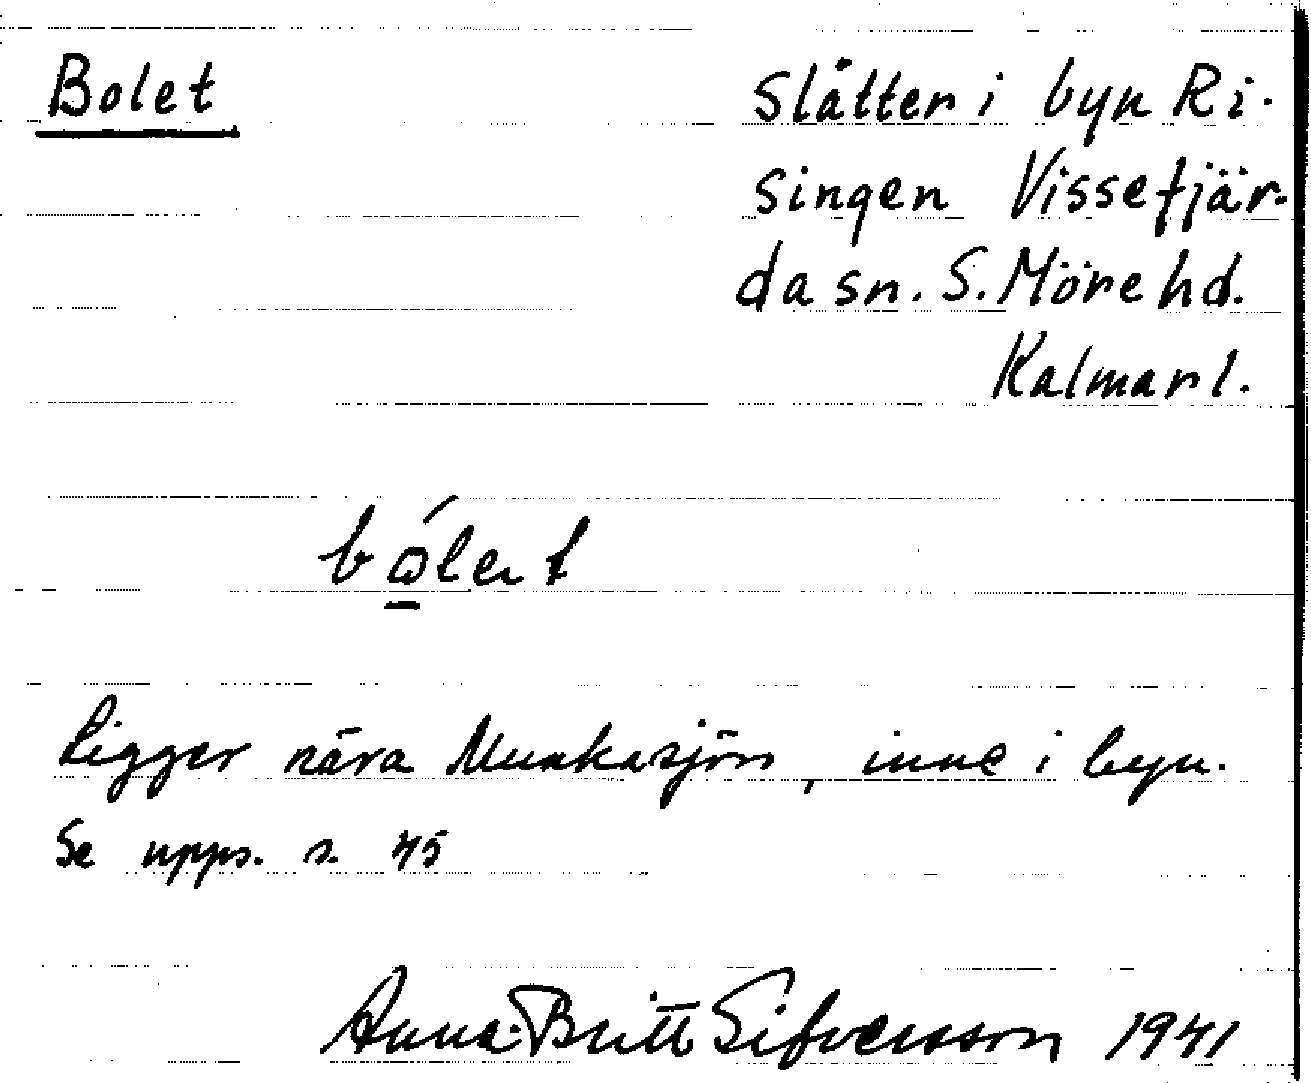 Bolet
Slåtter i byn Ri-
singen Vissefjär-
da sn. S. Möre hd.
Kalmar l.
Ligger nära Munkasjön, inne i byn.
Se upps. s. 45
Anna-Britt Sifversson 1941